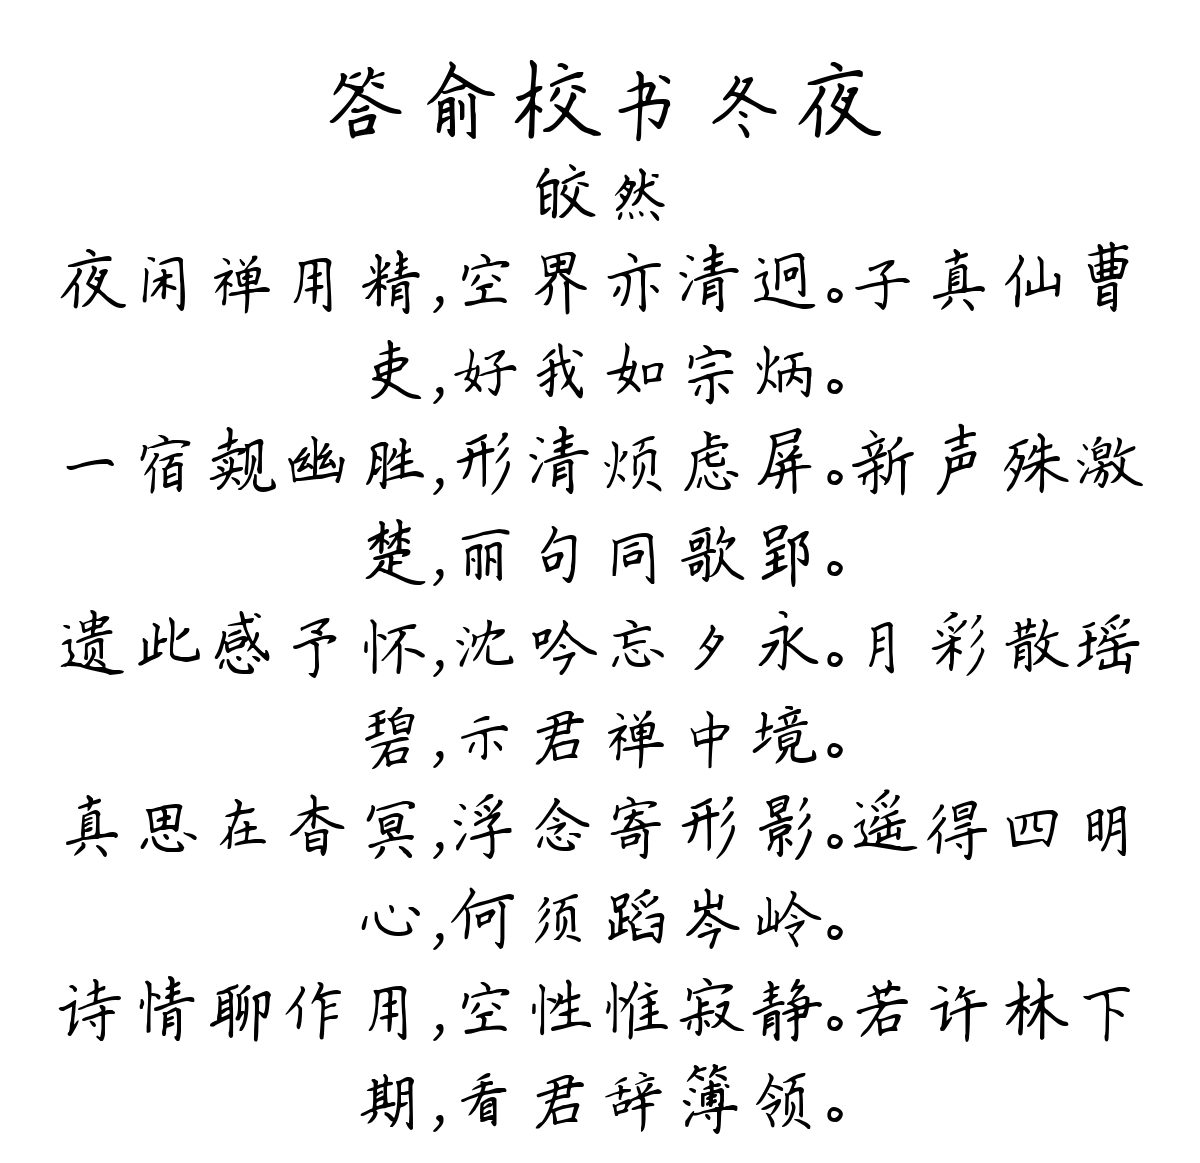 答俞校书冬夜
皎然
夜闲禅用精,空界亦清迥。子真仙曹
吏,好我如宗炳。
一宿觌幽胜,形清烦虑屏。新声殊激
楚,丽句同歌郢。
遗此感予怀,沈吟忘夕永。月彩散瑶
碧,示君禅中境。
真思在杳冥,浮念寄形影。遥得四明
心,何须蹈岑岭。
诗情聊作用,空性惟寂静。若许林下
期,看君辞簿领。